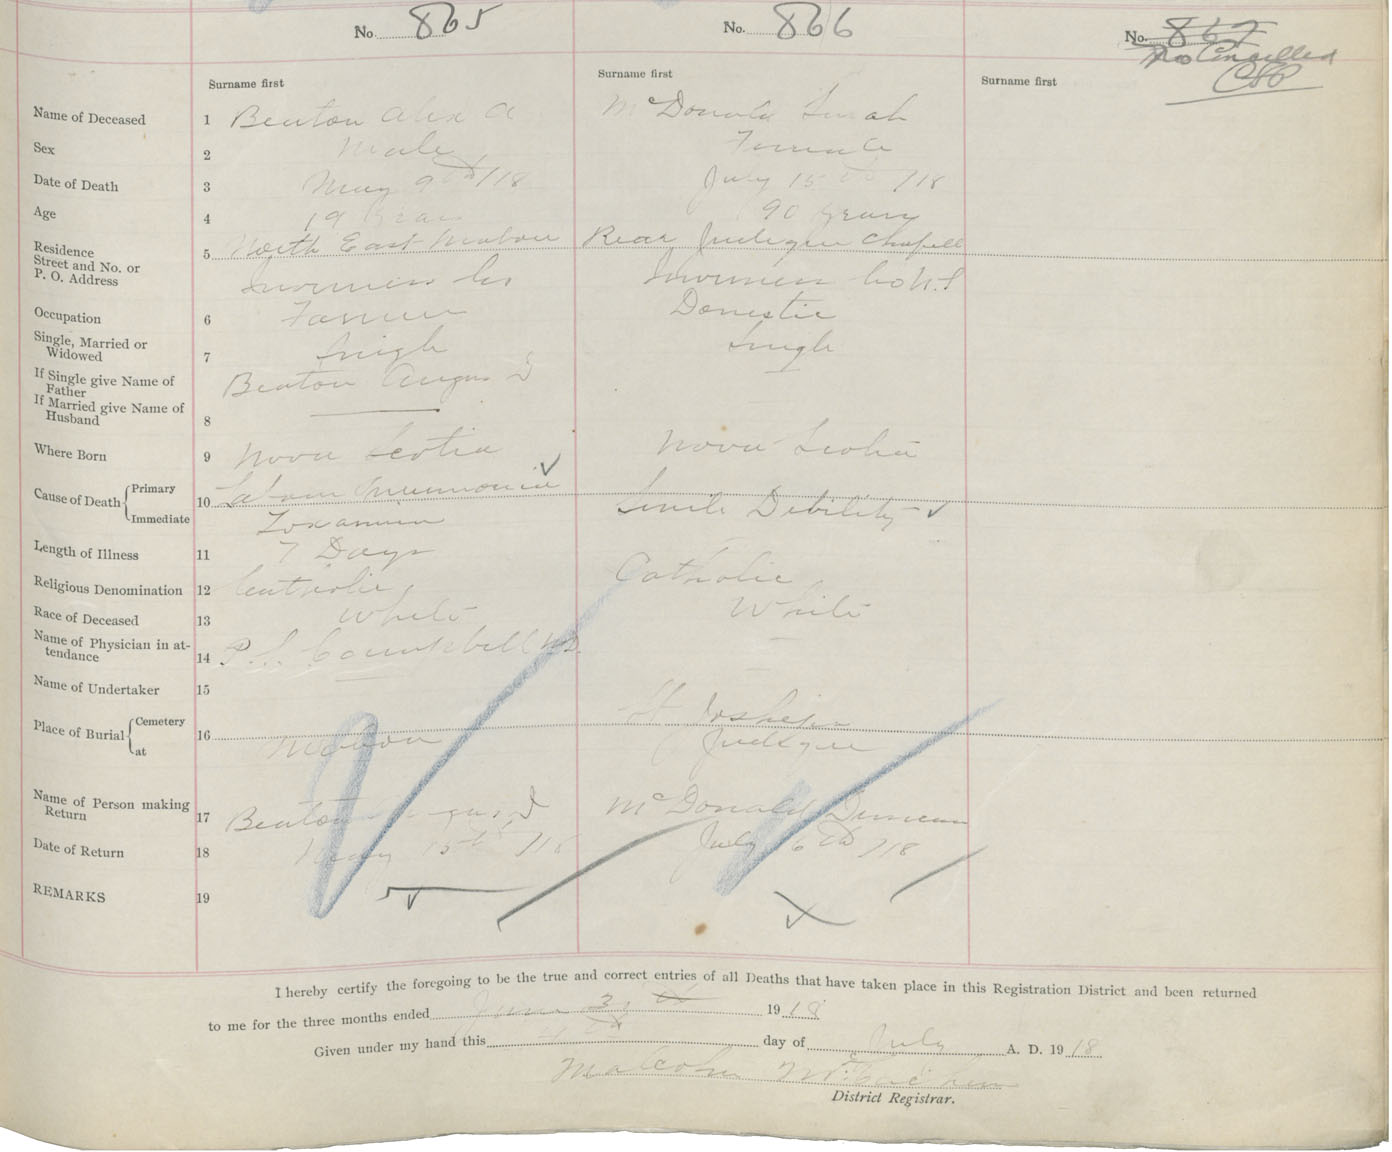 No. 865
No. 866
No. 867
Cancelled
Surname first
Surname first
Surname first
Name of Deceased 1 Beaton Alex A McDonald Sarah
Sex 2 Male Female
Date of Death 3 May 9th/18 July 15th/18
Age 4 19 Years 90 Years
Residence
Street and No. or
P. O. Address
5 North East Mabou Rear Judique Chapell
Inverness Co Inverness Co N.S
Occupation 6 Farmer Domestic
Single, Married or
Widowed
7 Single Single
If Single give Name of
Father
Beaton Angus D
If Married give Name of
Husband
8
Where Born 9 Nova Scotia Nova Scotia
Cause of Death Primary
Immediate
10 Pneumonia Senile Debility
Toxaemia
Length of Illness 11 7 Days
Religious Denomination 12 Catholic Catholic
Race of Deceased 13 White White
Name of Physician in at-
tendance
14 Campbell MD.
Name of Undertaker 15
Place of Burial Cemetery
at
16 Mabou St Joshephs
Judique
Name of Person making
Return
17 Beaton Angus D McDonald Duncan
Date of Return 18 May 15th/18 July /18
REMARKS 19
I hereby certify the foregoing to be the true and correct entries of all Deaths that have taken place in this Registration District and been returned
to me for the three months ended June 1918
Given under my hand this 4th day of July A. D. 1918
Malcolm McEachern
District Registrar.